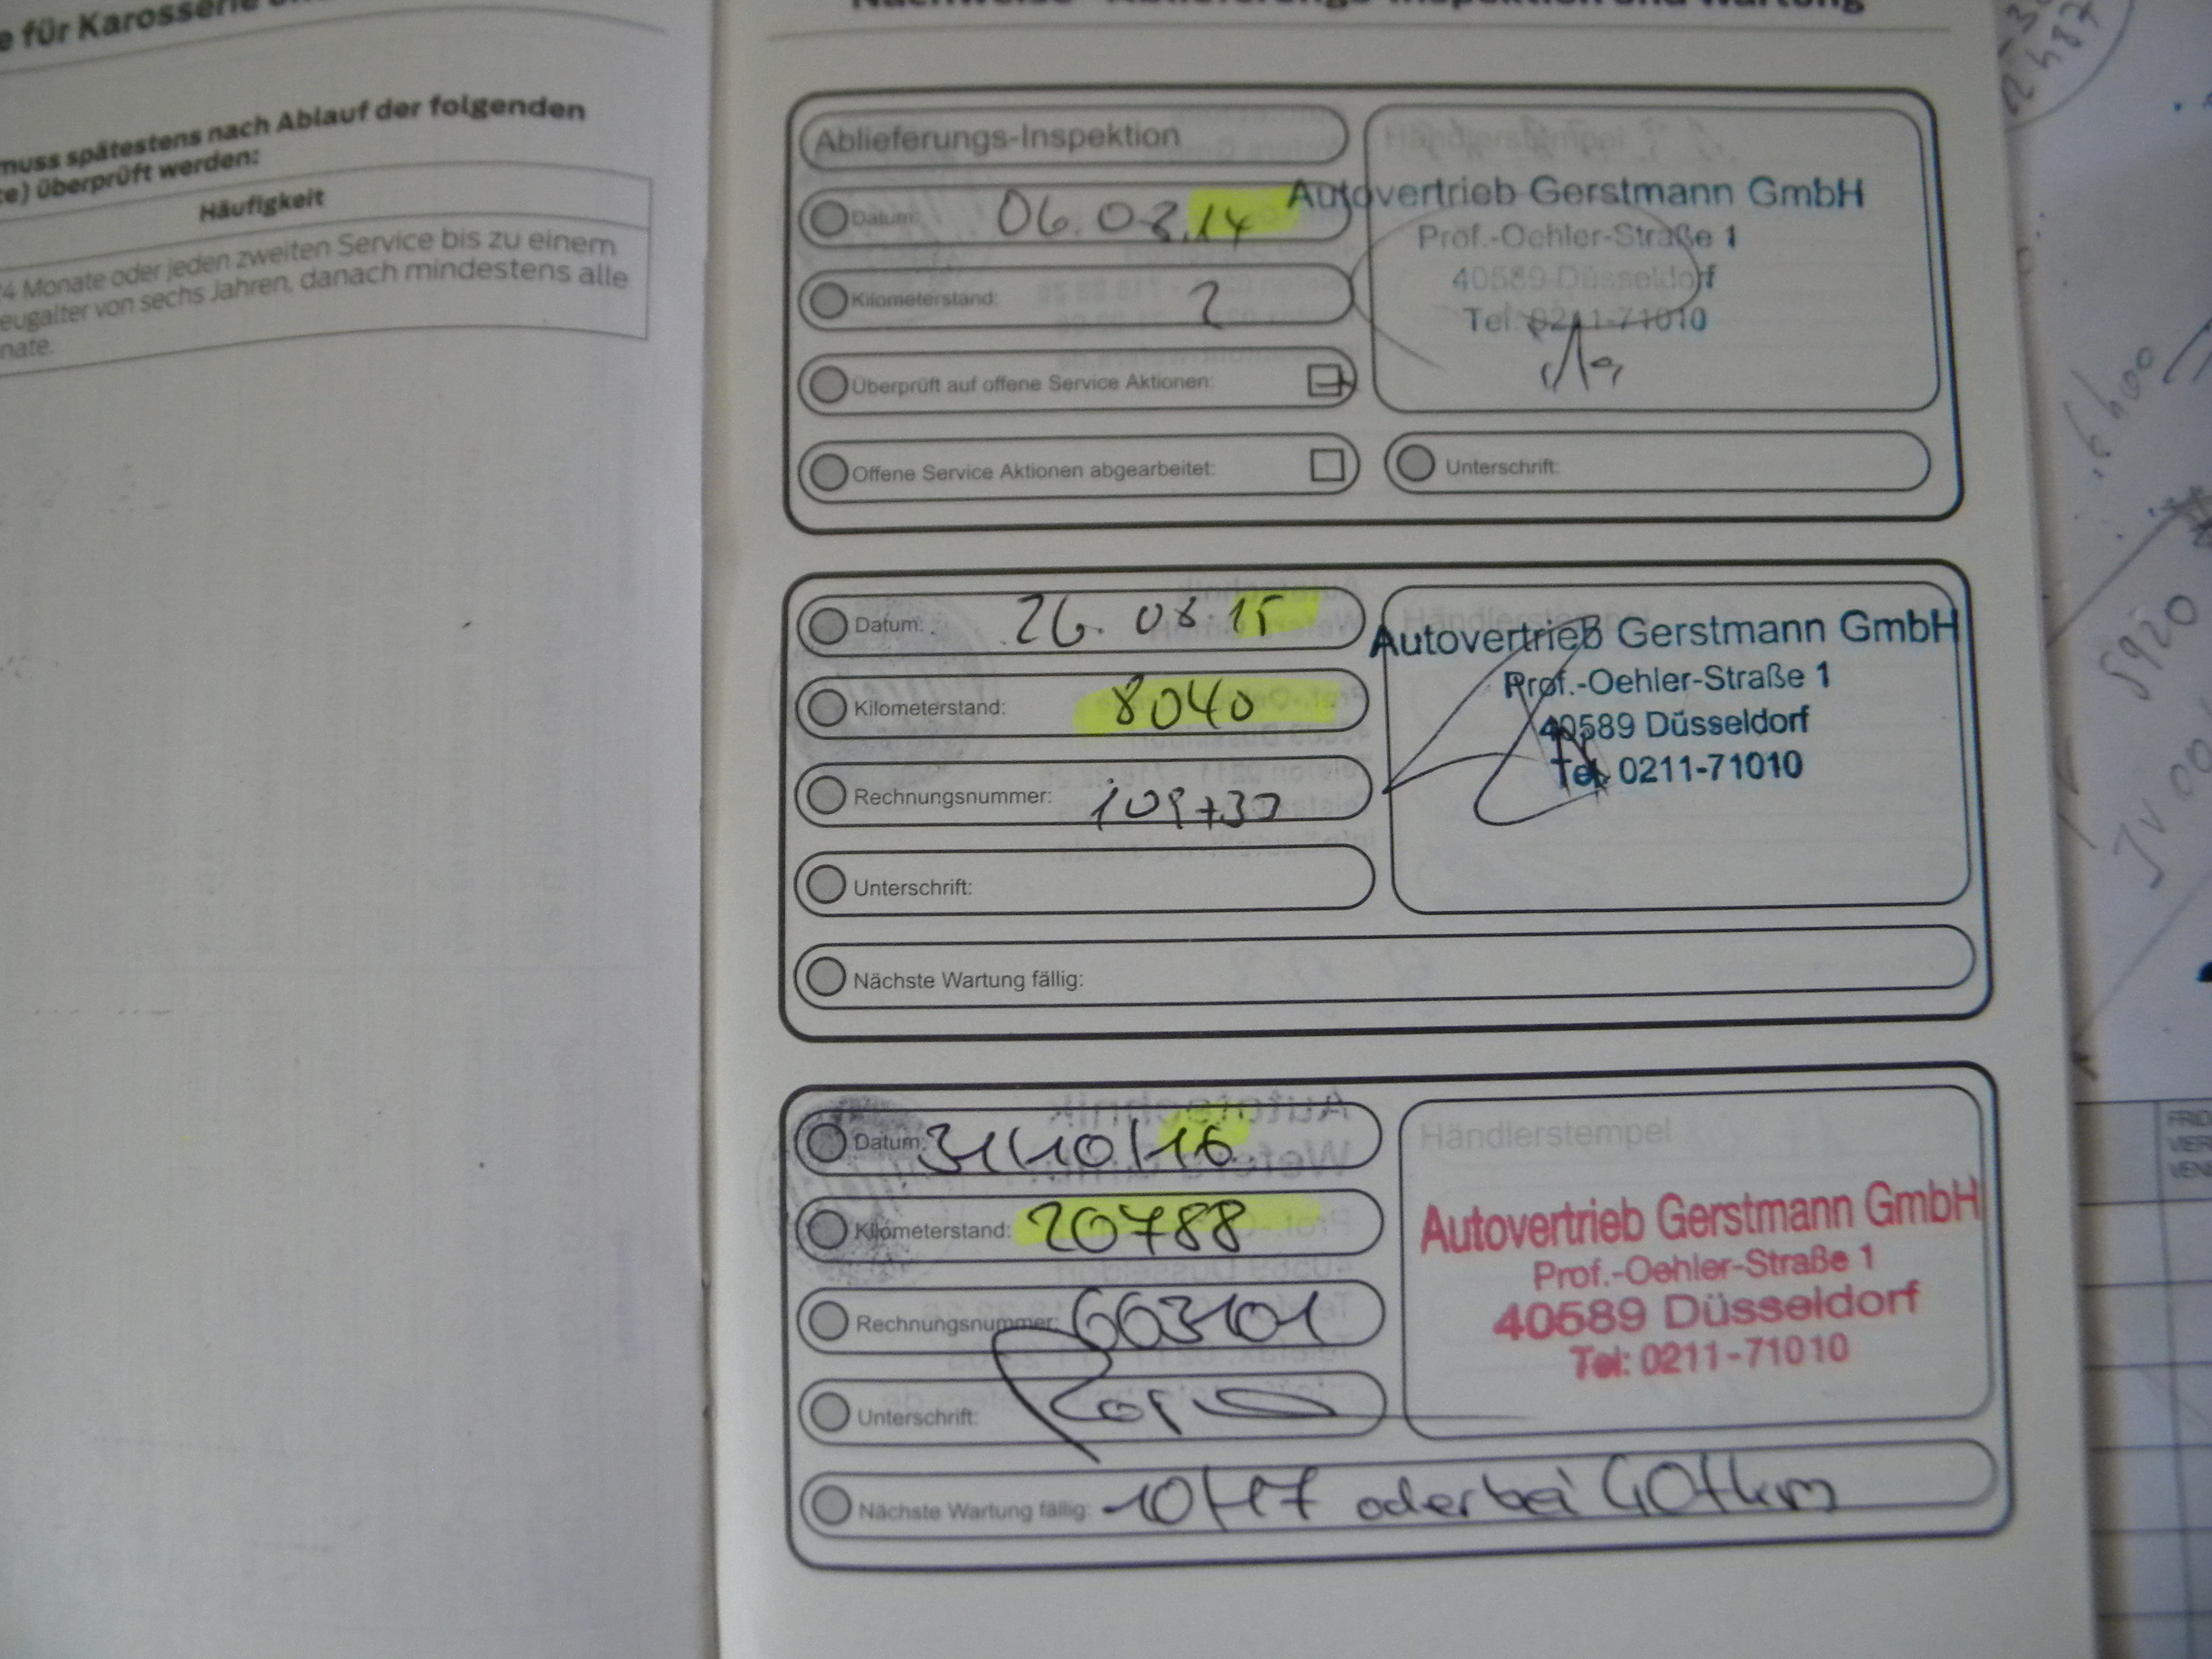 e für Karosserie
muss spätestens nach Ablauf der folgenden
te) überprüft werden:
Häufigkeit
24 Monate oder jeden zweiten Service bis zu einem
eugalter von sechs Jahren, danach mindestens alle
nate.
Ablieferungs-Inspektion
Datum: 06.03.14
Kilometerstand: 2
Überprüft auf offene Service Aktionen:
Offene Service Aktionen abgearbeitet:
Autovertrieb Gerstmann GmbH
Prof.-Oehler-Straße 1
40589 Düsseldorf
Tel. 0211-71010
Unterschrift:
Datum: 26.08.15
Kilometerstand: 8040
Rechnungsnummer:
Unterschrift:
Nächste Wartung fällig:
Händlerstempel
Autovertrieb Gerstmann GmbH
Prof.-Oehler-Straße 1
40589 Düsseldorf
Tel. 0211-71010
Datum: 31/10/16
Kilometerstand: 20788
Rechnungsnummer: 663101
Unterschrift:
Nächste Wartung fällig: 10/17 oder bei 40tkm
Händlerstempel
Autovertrieb Gerstmann GmbH
Prof.-Oehler-Straße 1
40589 Düsseldorf
Tel: 0211-71010
5920